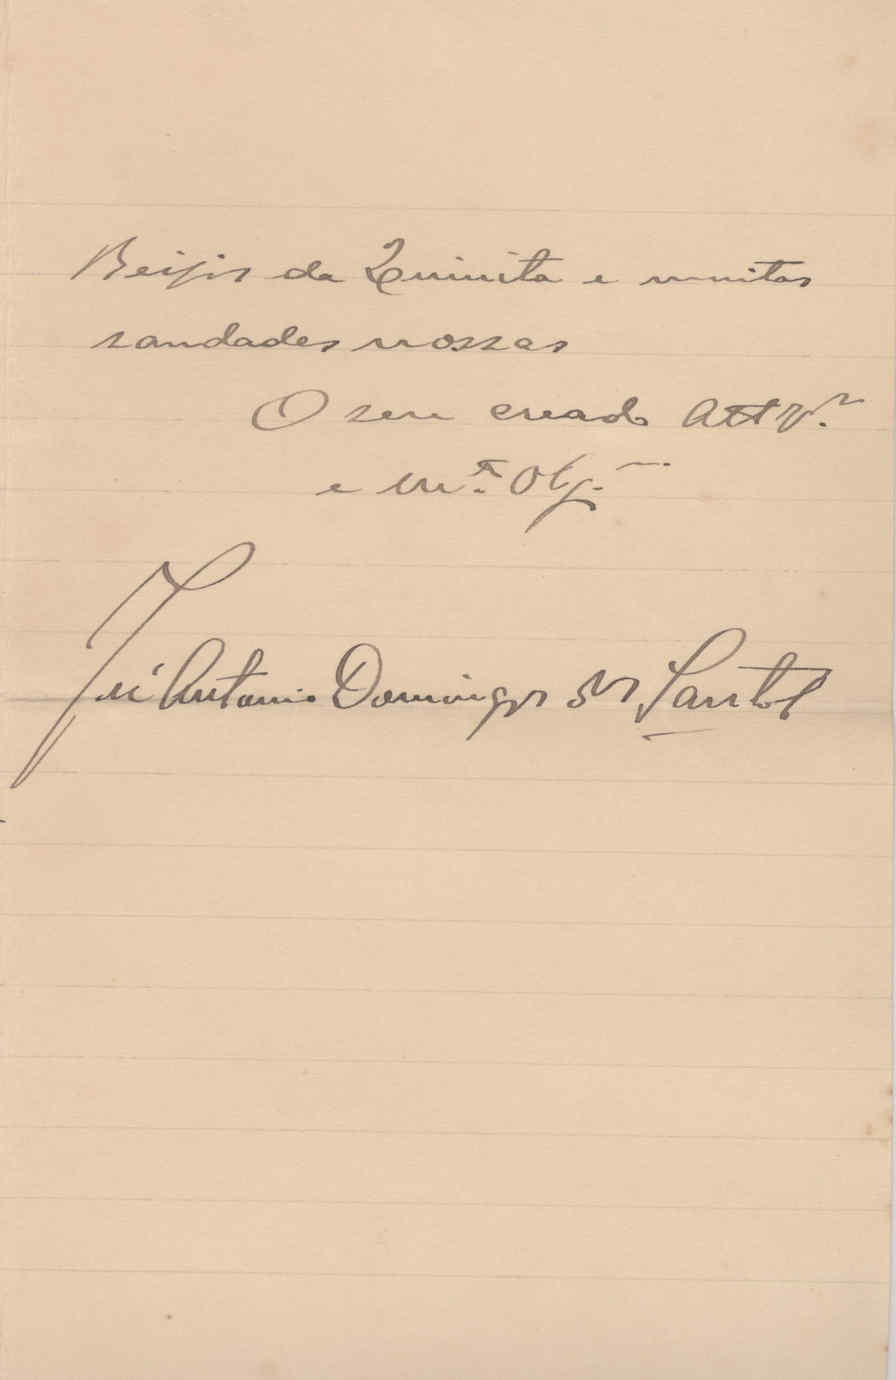 Beijos da Quinita e muitas
saudades nossas
O seu creado Attº Vºr
e mtº Obgº
José Antonio Domingos dos Santos